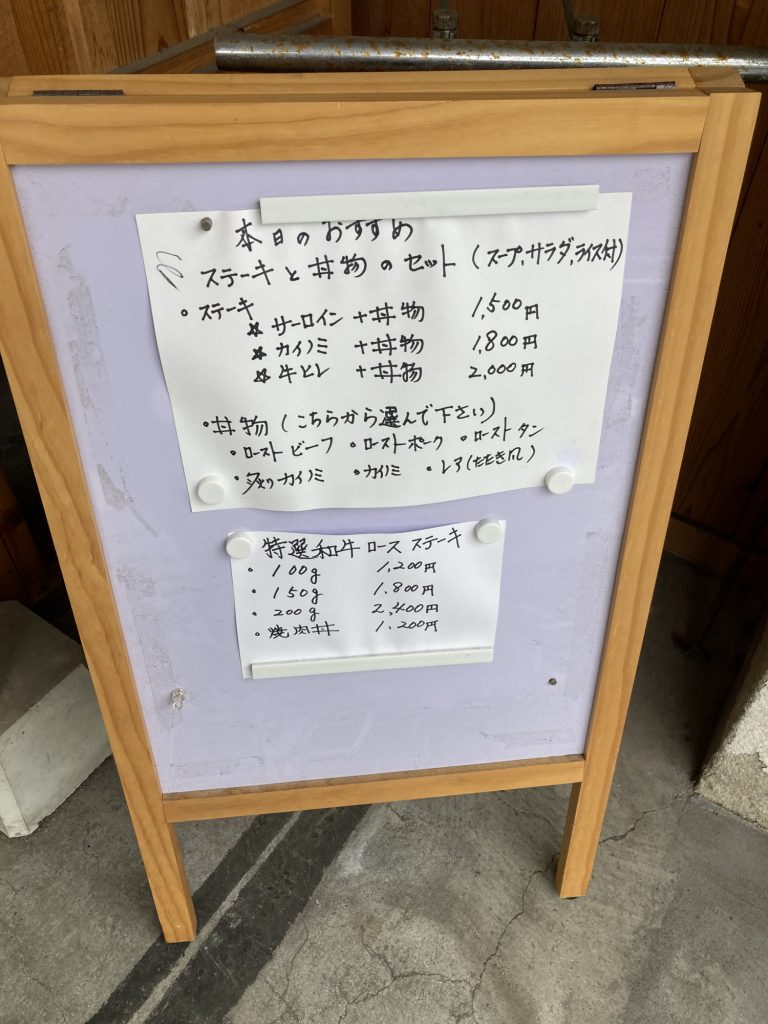 本日のおすすめ
ステーキと丼物のセット(スープ,サラダ,ライス付)
・ステーキ
☆サーロイン+丼物 1,500円
☆カイノミ+丼物 1,800円
☆牛ヒレ+丼物 2,000円
・丼物(こちらから選んで下さい)
・ローストビーフ ・ローストポーク ・ローストタン
・炙りカイノミ ・カイノミ ・レア(たたき風)
特選和牛ロースステーキ
・100g 1,200円
・150g 1.800円
・200g 2,400円
・焼肉丼 1.200円